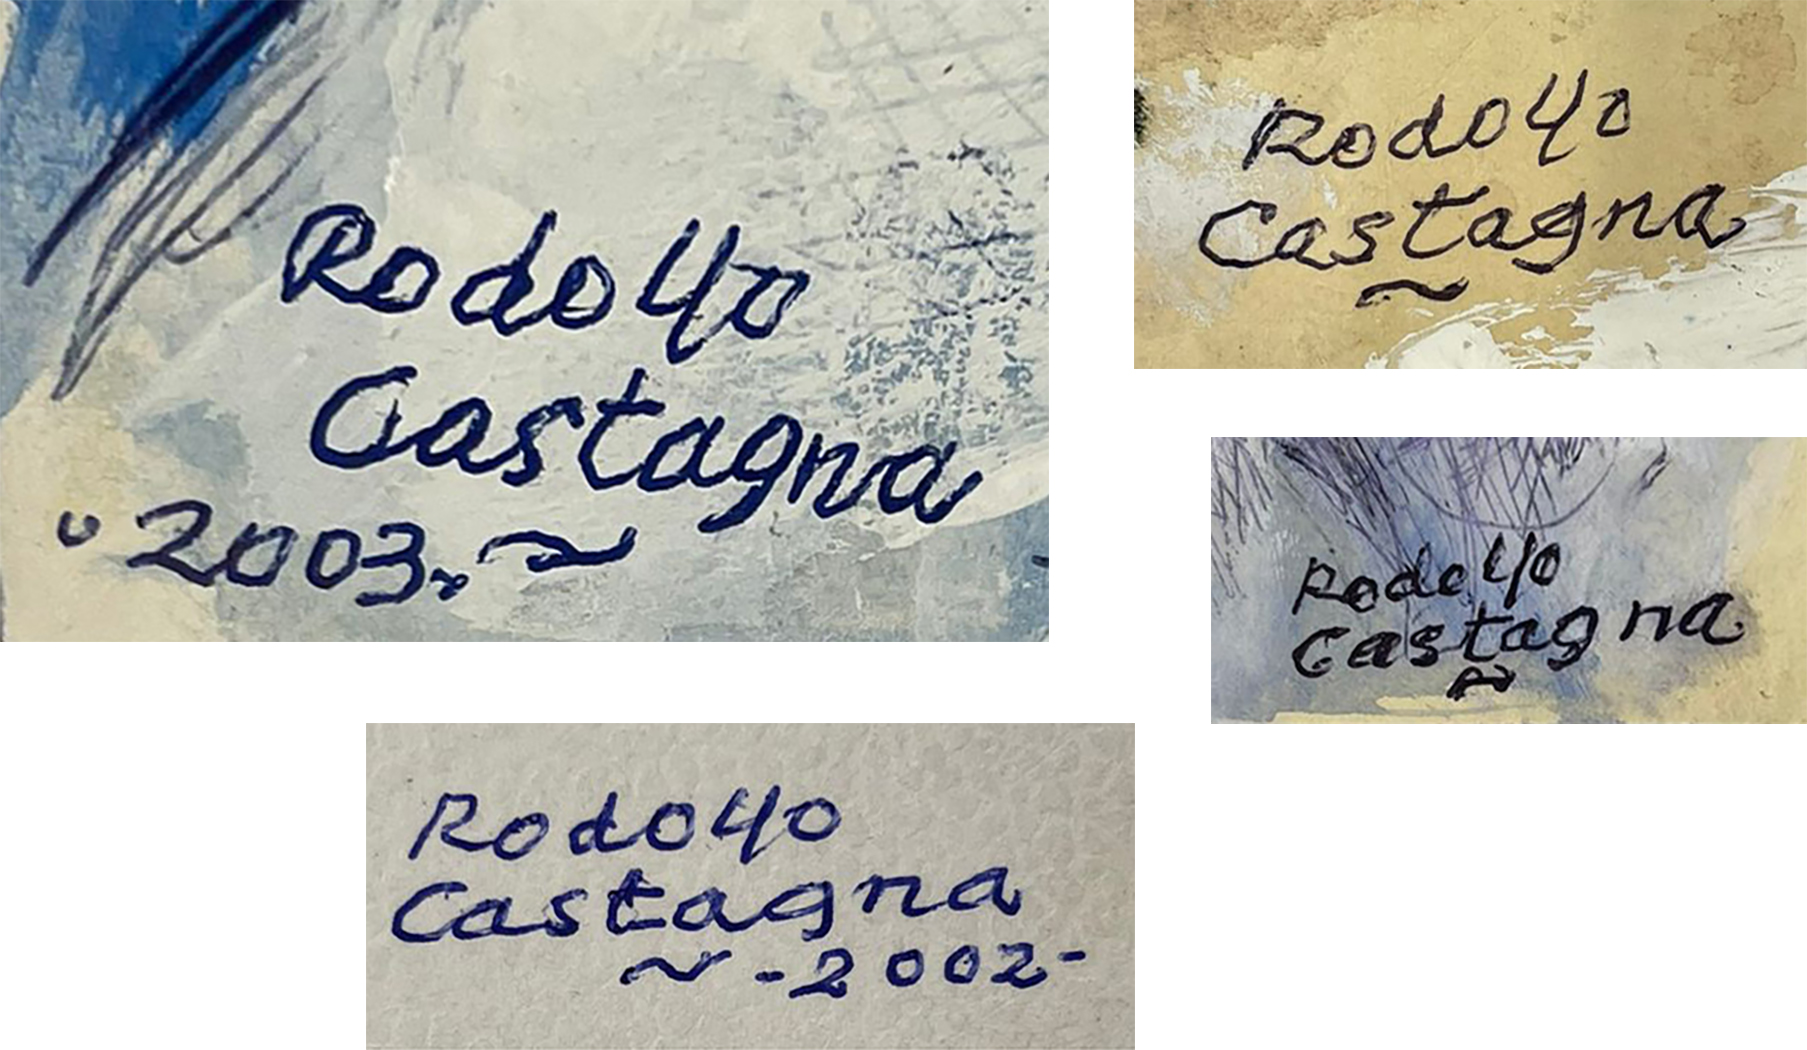 Rodolfo
Castagna
"2003"~
Rodolfo
Castagna
~
Rodolfo
Castagna
~
Rodolfo
Castagna
~ -2002-